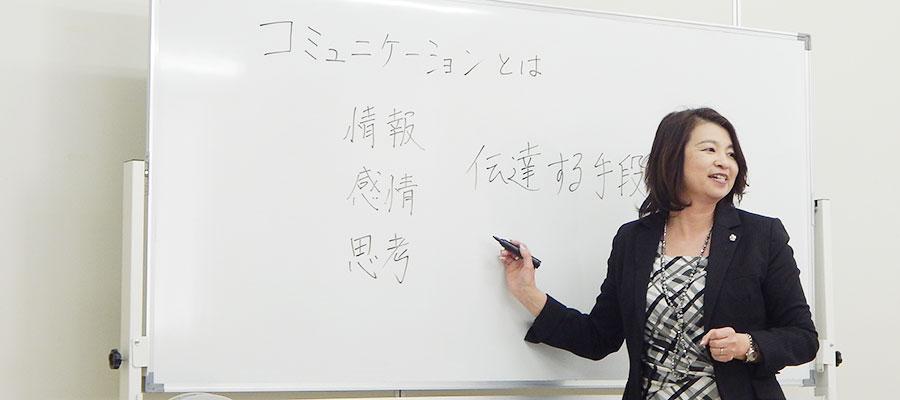 コミュニケーションとは
情報
感情
思考
伝達する手段